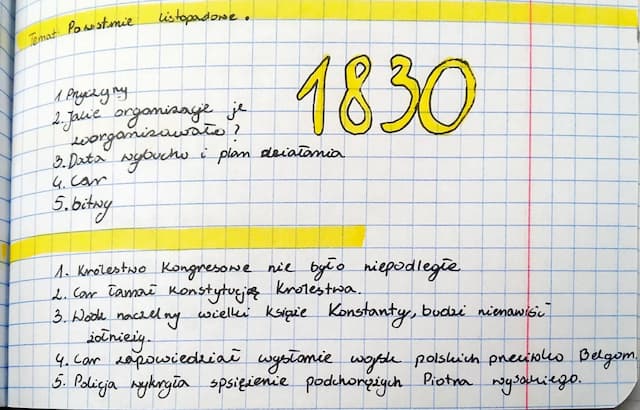 Temat Powstanie listopadowe.
1830
1. Przyczyny
2. Jakie organizacje je
zorganizowało?
3. Data wybuchu i plan działania
4. Car
5. bitwy
1. Królestwo Kongresowe nie było niepodległe
2. Car łamał konstytucję Królestwa.
3. Wódz naczelny wielki książe Konstanty, budzi nienawiść
żołnierzy.
4. Car zapowiedział wysłanie wojsk polskich przeciwko Belgom.
5. Policja wykryła spsięienie podchorężych Piotra wysockiego.